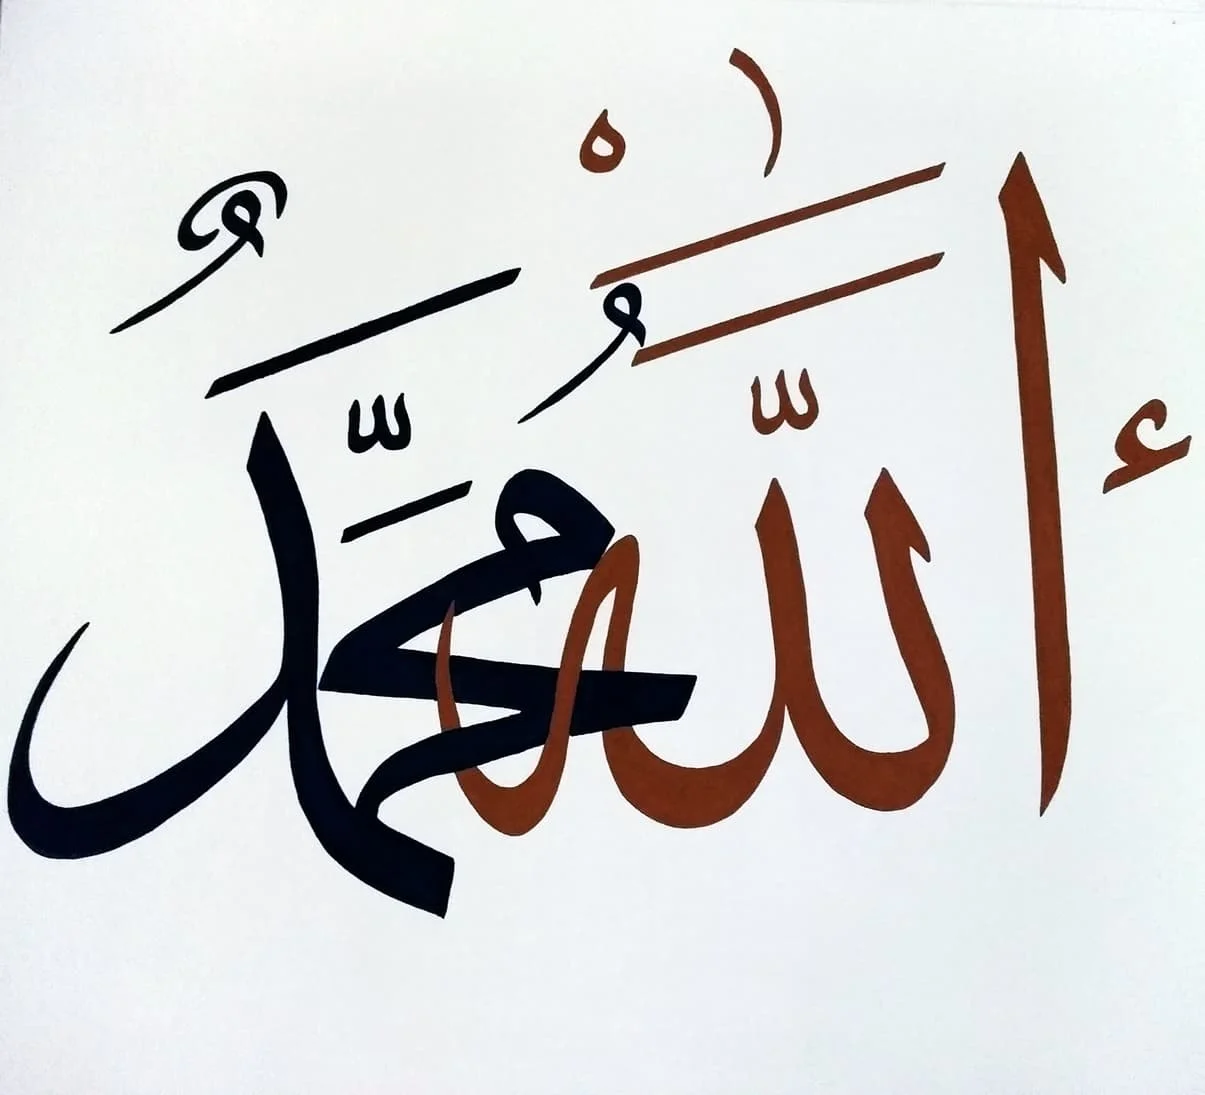 ألله محمد